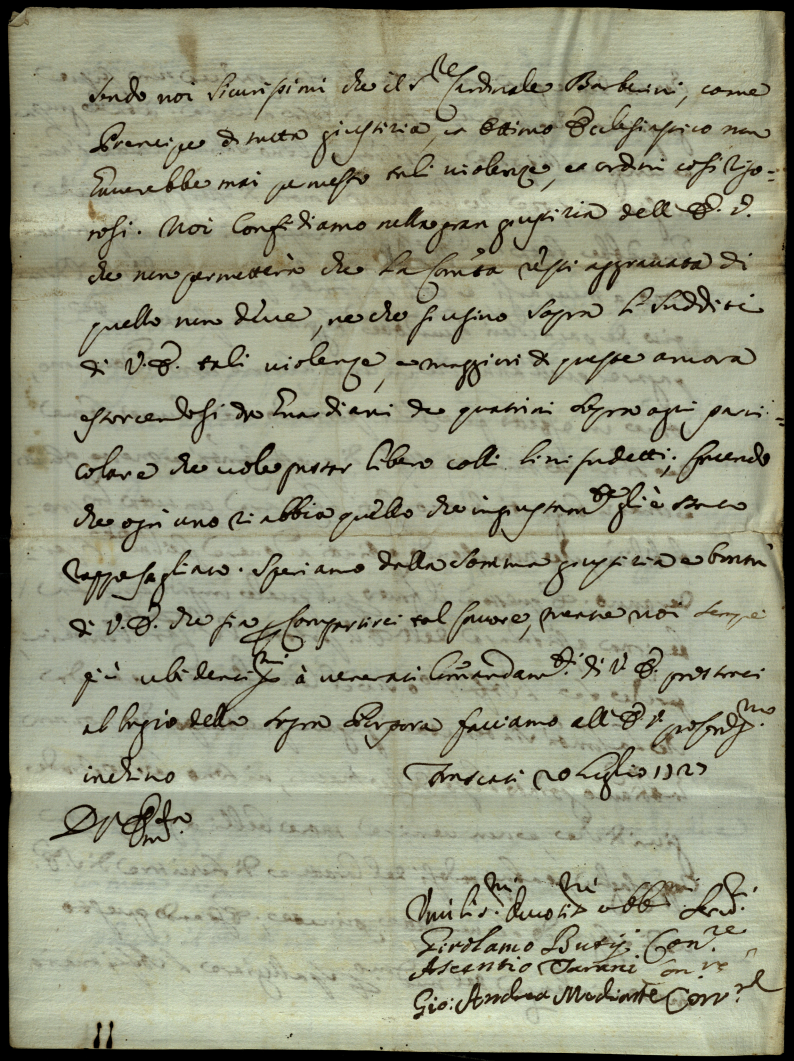 sendo noi sicurissimi che il S.re Cardinale Barberini, come
Prencipe di tutta giustizia, et ottimo Ecclesiastico non
haverebbe mai permesso tali violenze, et ordini così rigo=
rosi. Noi Confidiamo nella gran giustizia dell'E. V.
che non permetterà che la Com̃tà resti aggravata di
quello non deve, ne che si usino sopra li sudditi
di V. E. tali violenze, e maggiori di queste ancora
estorcendosi da Guardiani de quatrini sopra ogni parti=
colare che vole passar libero colli lini sudetti; facendo
che ogni uno riabbia quello che ingiustam.te gli è stato
rappresagliato. Speriamo dalla somma giustizia e bontà
di V. E. che sia p compartirci tal favore, mentre noi sempre
più ubidientis.mi à venerati Comandam.ti di V. E. prostrati
al bagio della sagra Porpora facciamo all'E. V. profondis.mo
inchino
Frascati 20 Luglio 1727
Di V. E. R.ma
Umilis.mi Devotis.mi Obb.mi Serv.ri
Girolamo Butij Con.re
Ascentio Con.re
Gio: Andrea Con.re
11